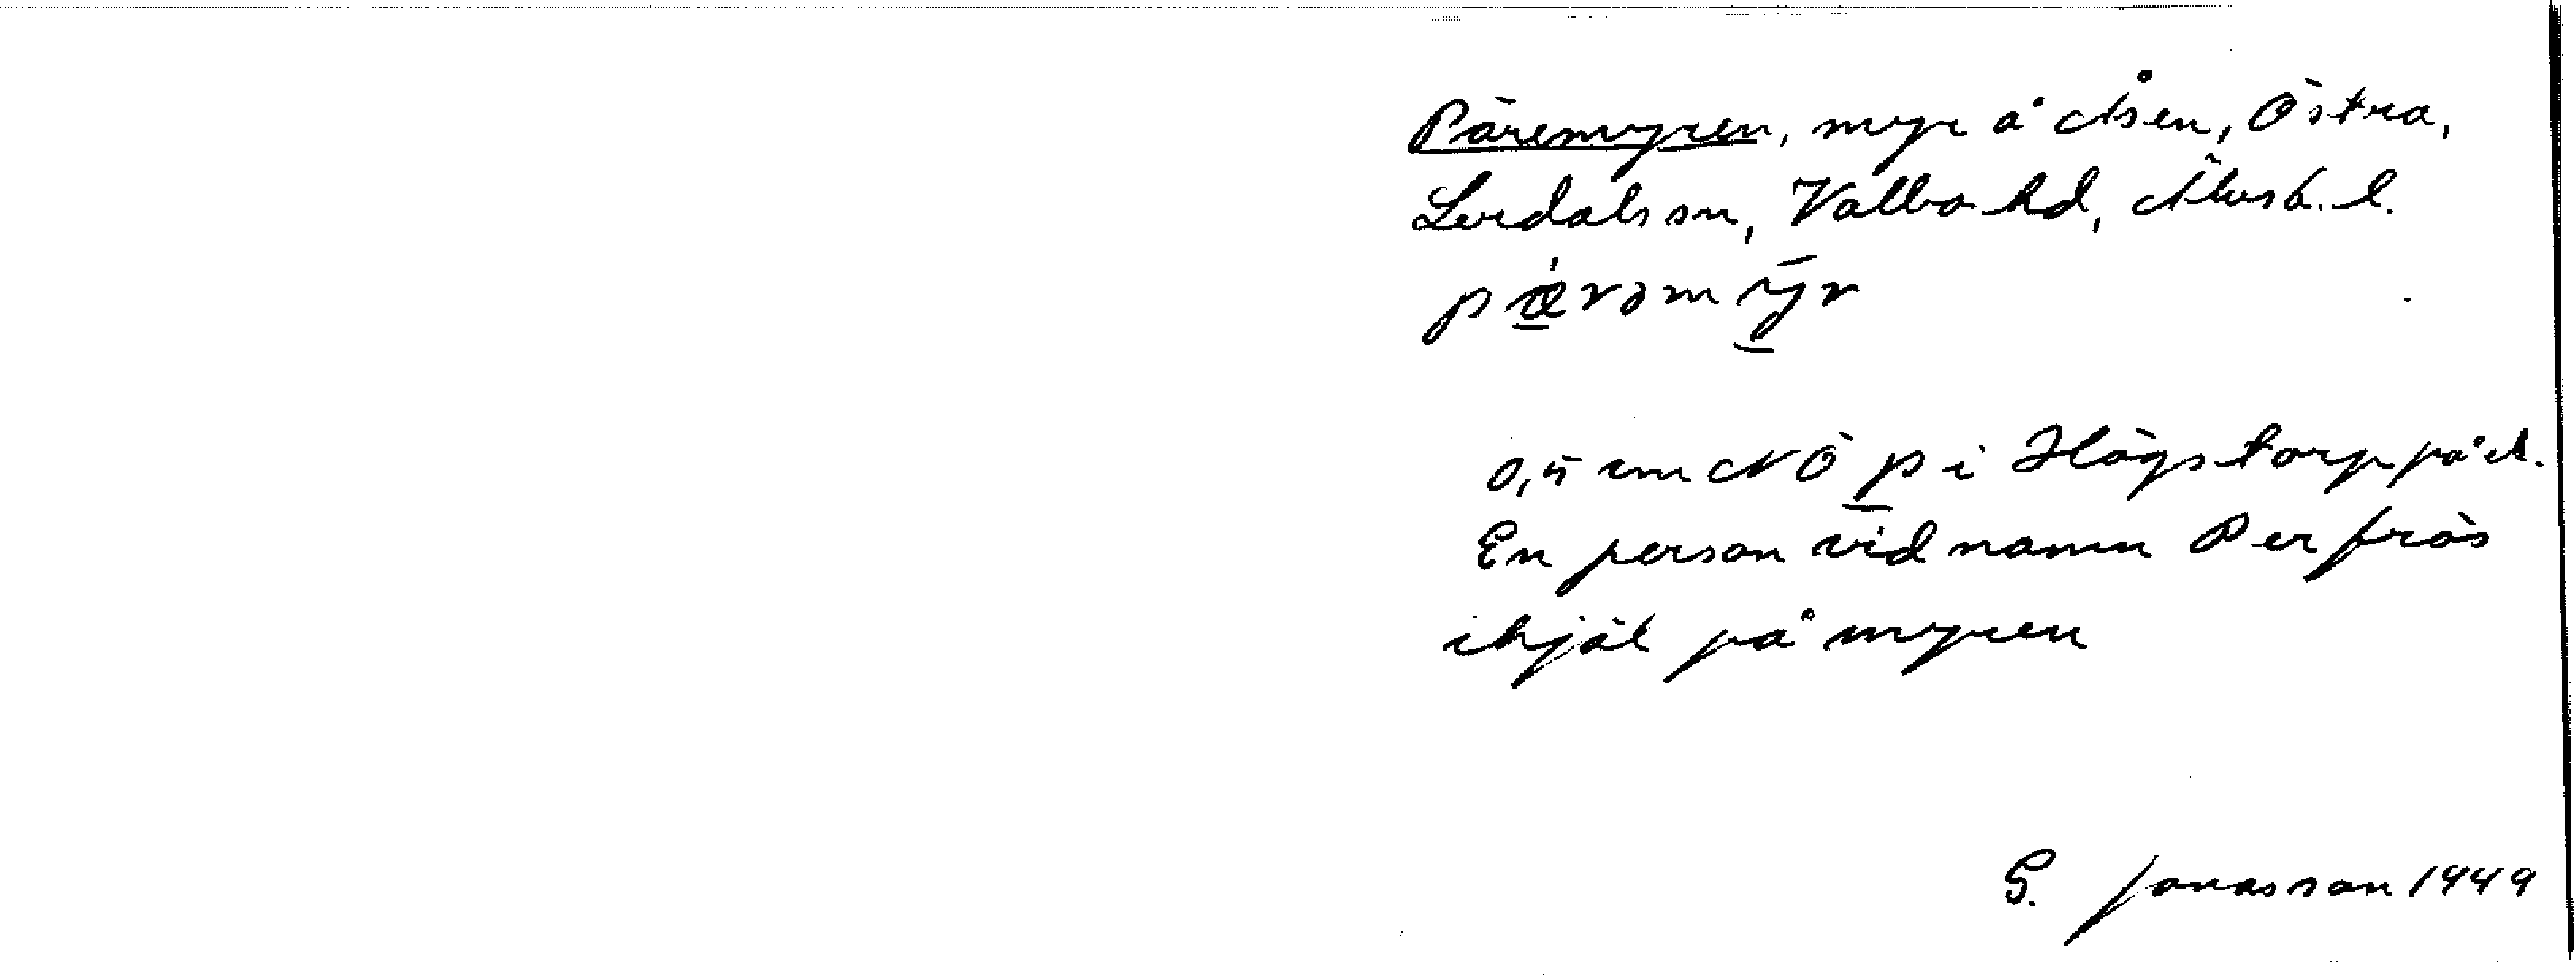 Päremyren, myr å Åsen, Östra,
Lerdals sn, Valbo hd, Älvsb. l.
pæ̀rəmȳr
0,5 cm NÖ p i Högstorp på ek.
En person vid namn Per frös
ihjäl på myren
G. Jonasson 1949